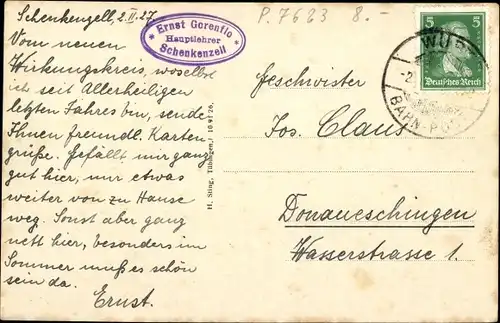 Schenkenzell, 2.II.27.
Vom neuen
Wirkungskreis, woselbst
ich seit Allerheiligen
letzten Jahres bin, sende
Ihnen freundl. Karten-
grüße. Gefällt mir ganz
gut hier, nur etwas
weiter von zu Hause
weg. Sonst aber ganz
nett hier, besonders im
Sommer muß es schön
sein da.
Ernst.
* Ernst Gorenflo *
Hauptlehrer
Schenkenzell
H. Sting, Tübingen,
P.7623 8.-
5 5
Deutsches Reich
BAHN-PO
Geschwister
Jos. Claus
Donaueschingen
Wasserstrasse 1.